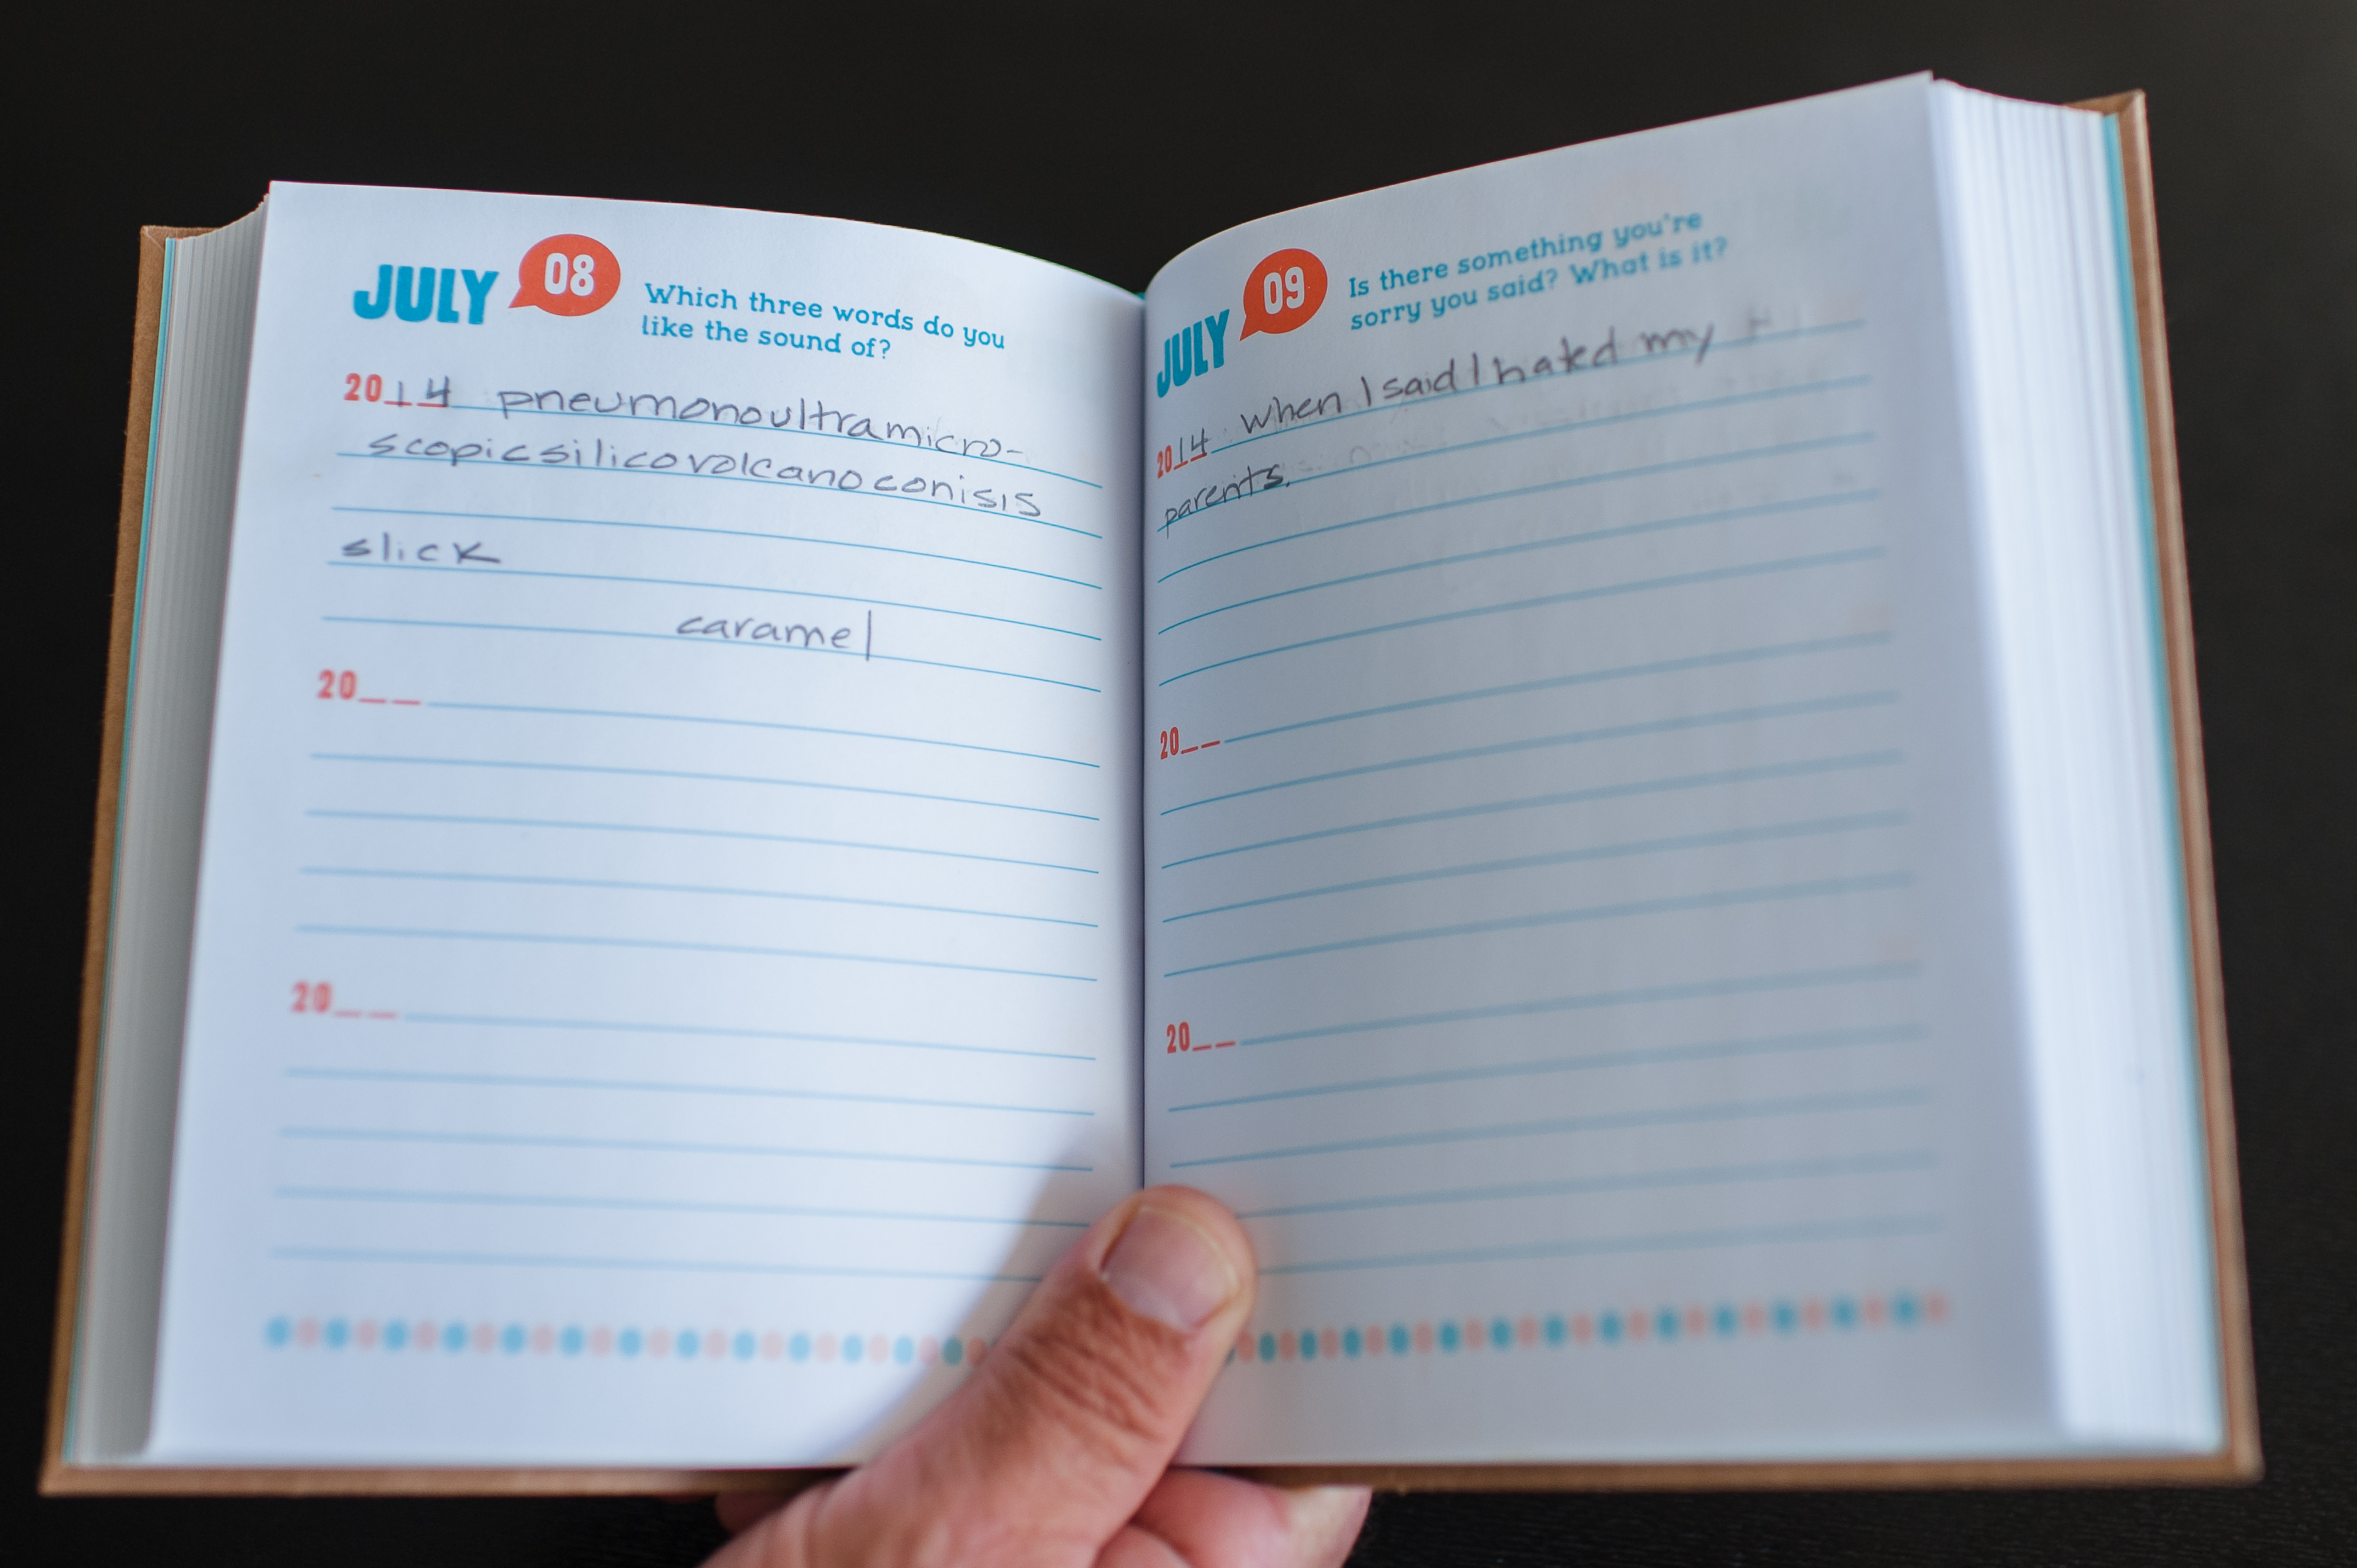 JULY 08 Which three words do you
like the sound of?
2014 pneumonoultramicro-
scopicsilicovolcanoconisis
slick
caramel
20__
20__
JULY 09 Is there something you're
sorry you said? What is it?
2014 When I said I hated my
parents.
20__
20__